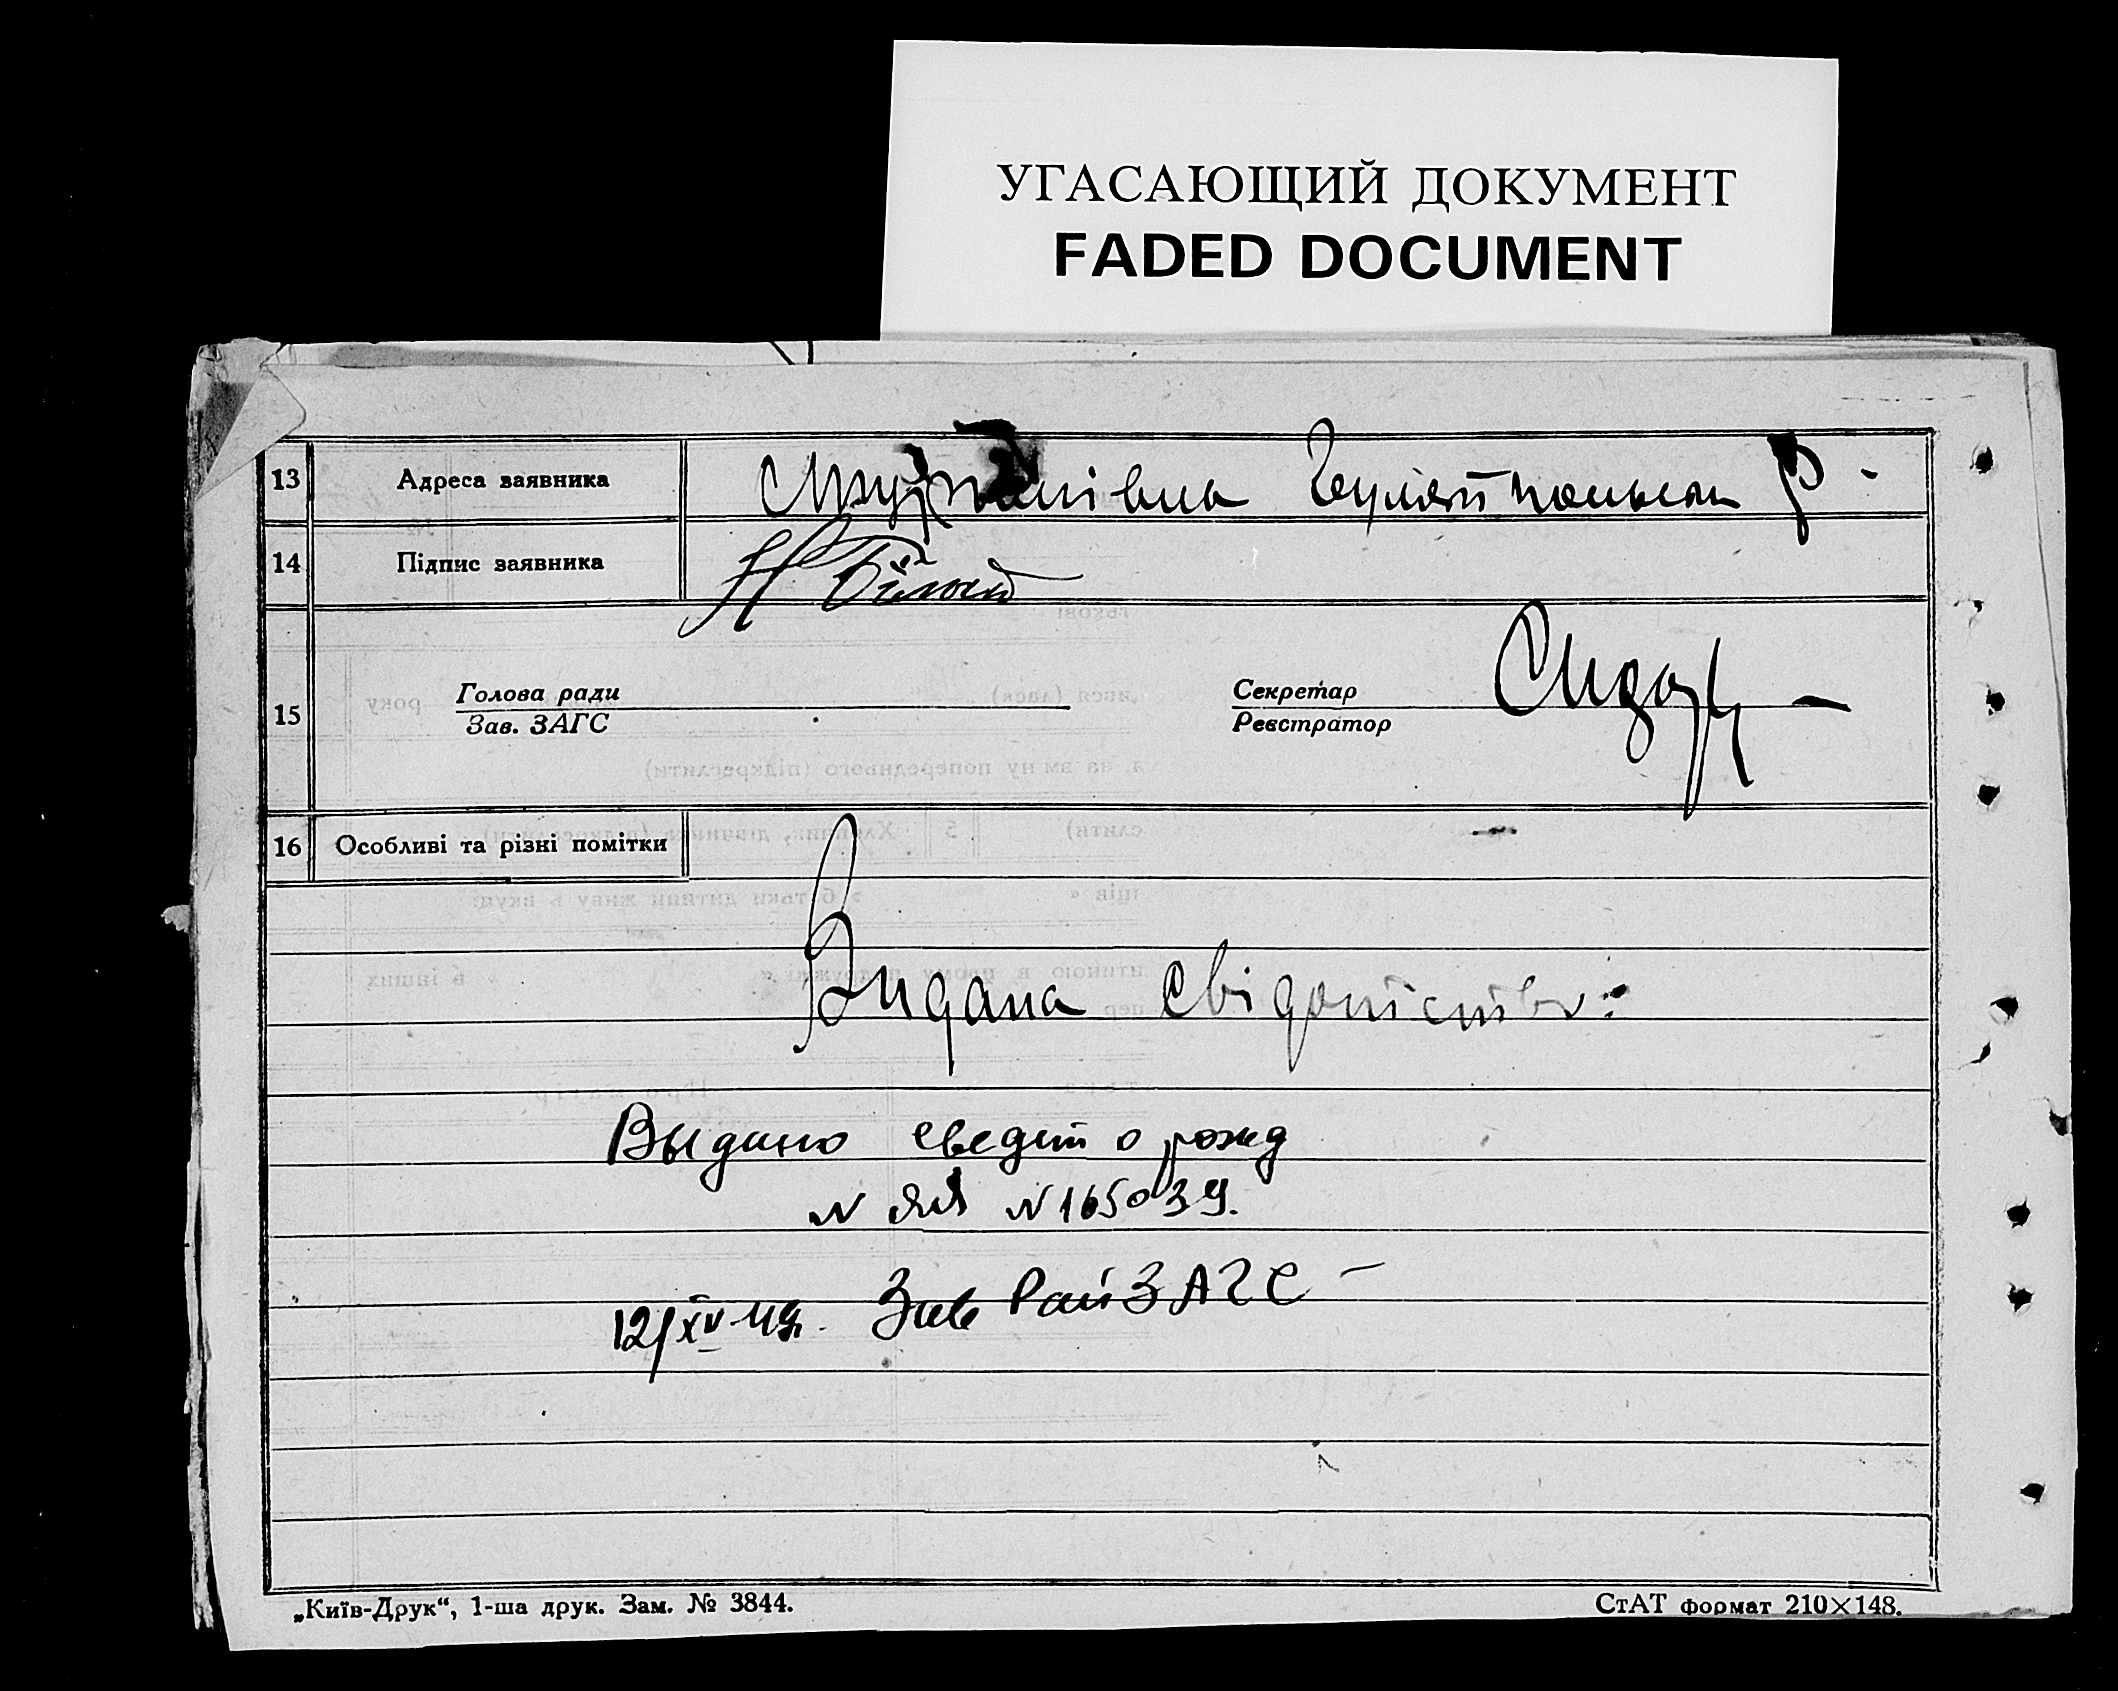 УГАСАЮЩИЙ ДОКУМЕНТ
FADED DOCUMENT
13 Адреса заявника
14 Підпис заявника
15 Голова ради Секретар
Зав. ЗАГС Реєстратор
16 Особливі та різні помітки
Видана свідотство:
Выдано свидет о рожд
N N 165039.
Зав РайЗАГС
„Київ-Друк“, 1-ша друк. Зам. № 3844. СтАТ формат 210×148.